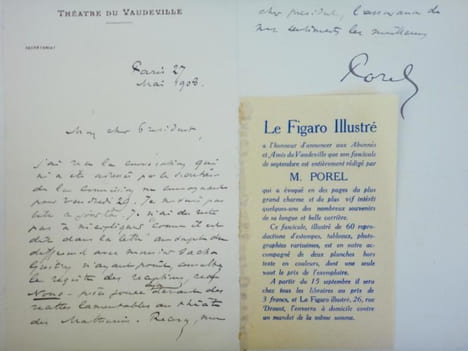 THÉATRE DU VAUDEVILLE
SECRÉTARIAT
Paris 27
Mai 1908
Mon cher Président,
j'ai reçu la convocation qui
m'a été adressé par le
de la Commission me convoquant
pour Vendredi 29. Je ne suis pas
libre à 
pas à m'expliquer comme il est
dit dans la lettre au sujet du
différend avec Monsieur Sacha
Guitry n'ayant
le registre des réceptions
Nous
recettes lamentables au théâtre
des Mathurins. Recevez, mon
cher président, l'assurance de
mes sentiments les meilleurs
Porel
Le Figaro Illustré
a l'honneur d'annoncer aux Abonnés
et Amis du Vaudeville que son fascicule
de septembre est entièrement rédigé par
M. POREL
qui a évoqué en des pages du plus
grand charme et du plus vif intérêt
quelques-uns des nombreux souvenirs
de sa longue et belle carrière.
Ce fascicule, illustré de 60 repro-
ductions d'estampes, tableaux, photo-
graphies rarissimes, est en outre ac-
compagné de deux planches hors
texte en couleurs, dont une seule
vaut le prix de l'exemplaire.
A partir du 15 septembre il sera
chez tous les libraires au prix de
3 francs, et Le Figaro illustré, 26, rue
Drouot, l'enverra à domicile contre
un mandat de la même somme.